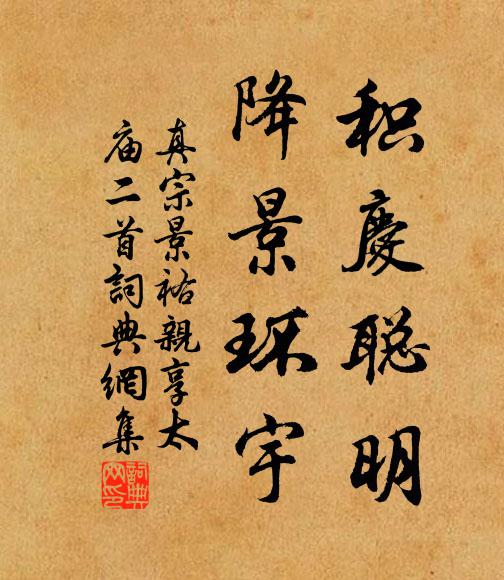 积慶聪明
降景环宇
真宗景祐親享太
庙二首詞典網集
詞典
网印